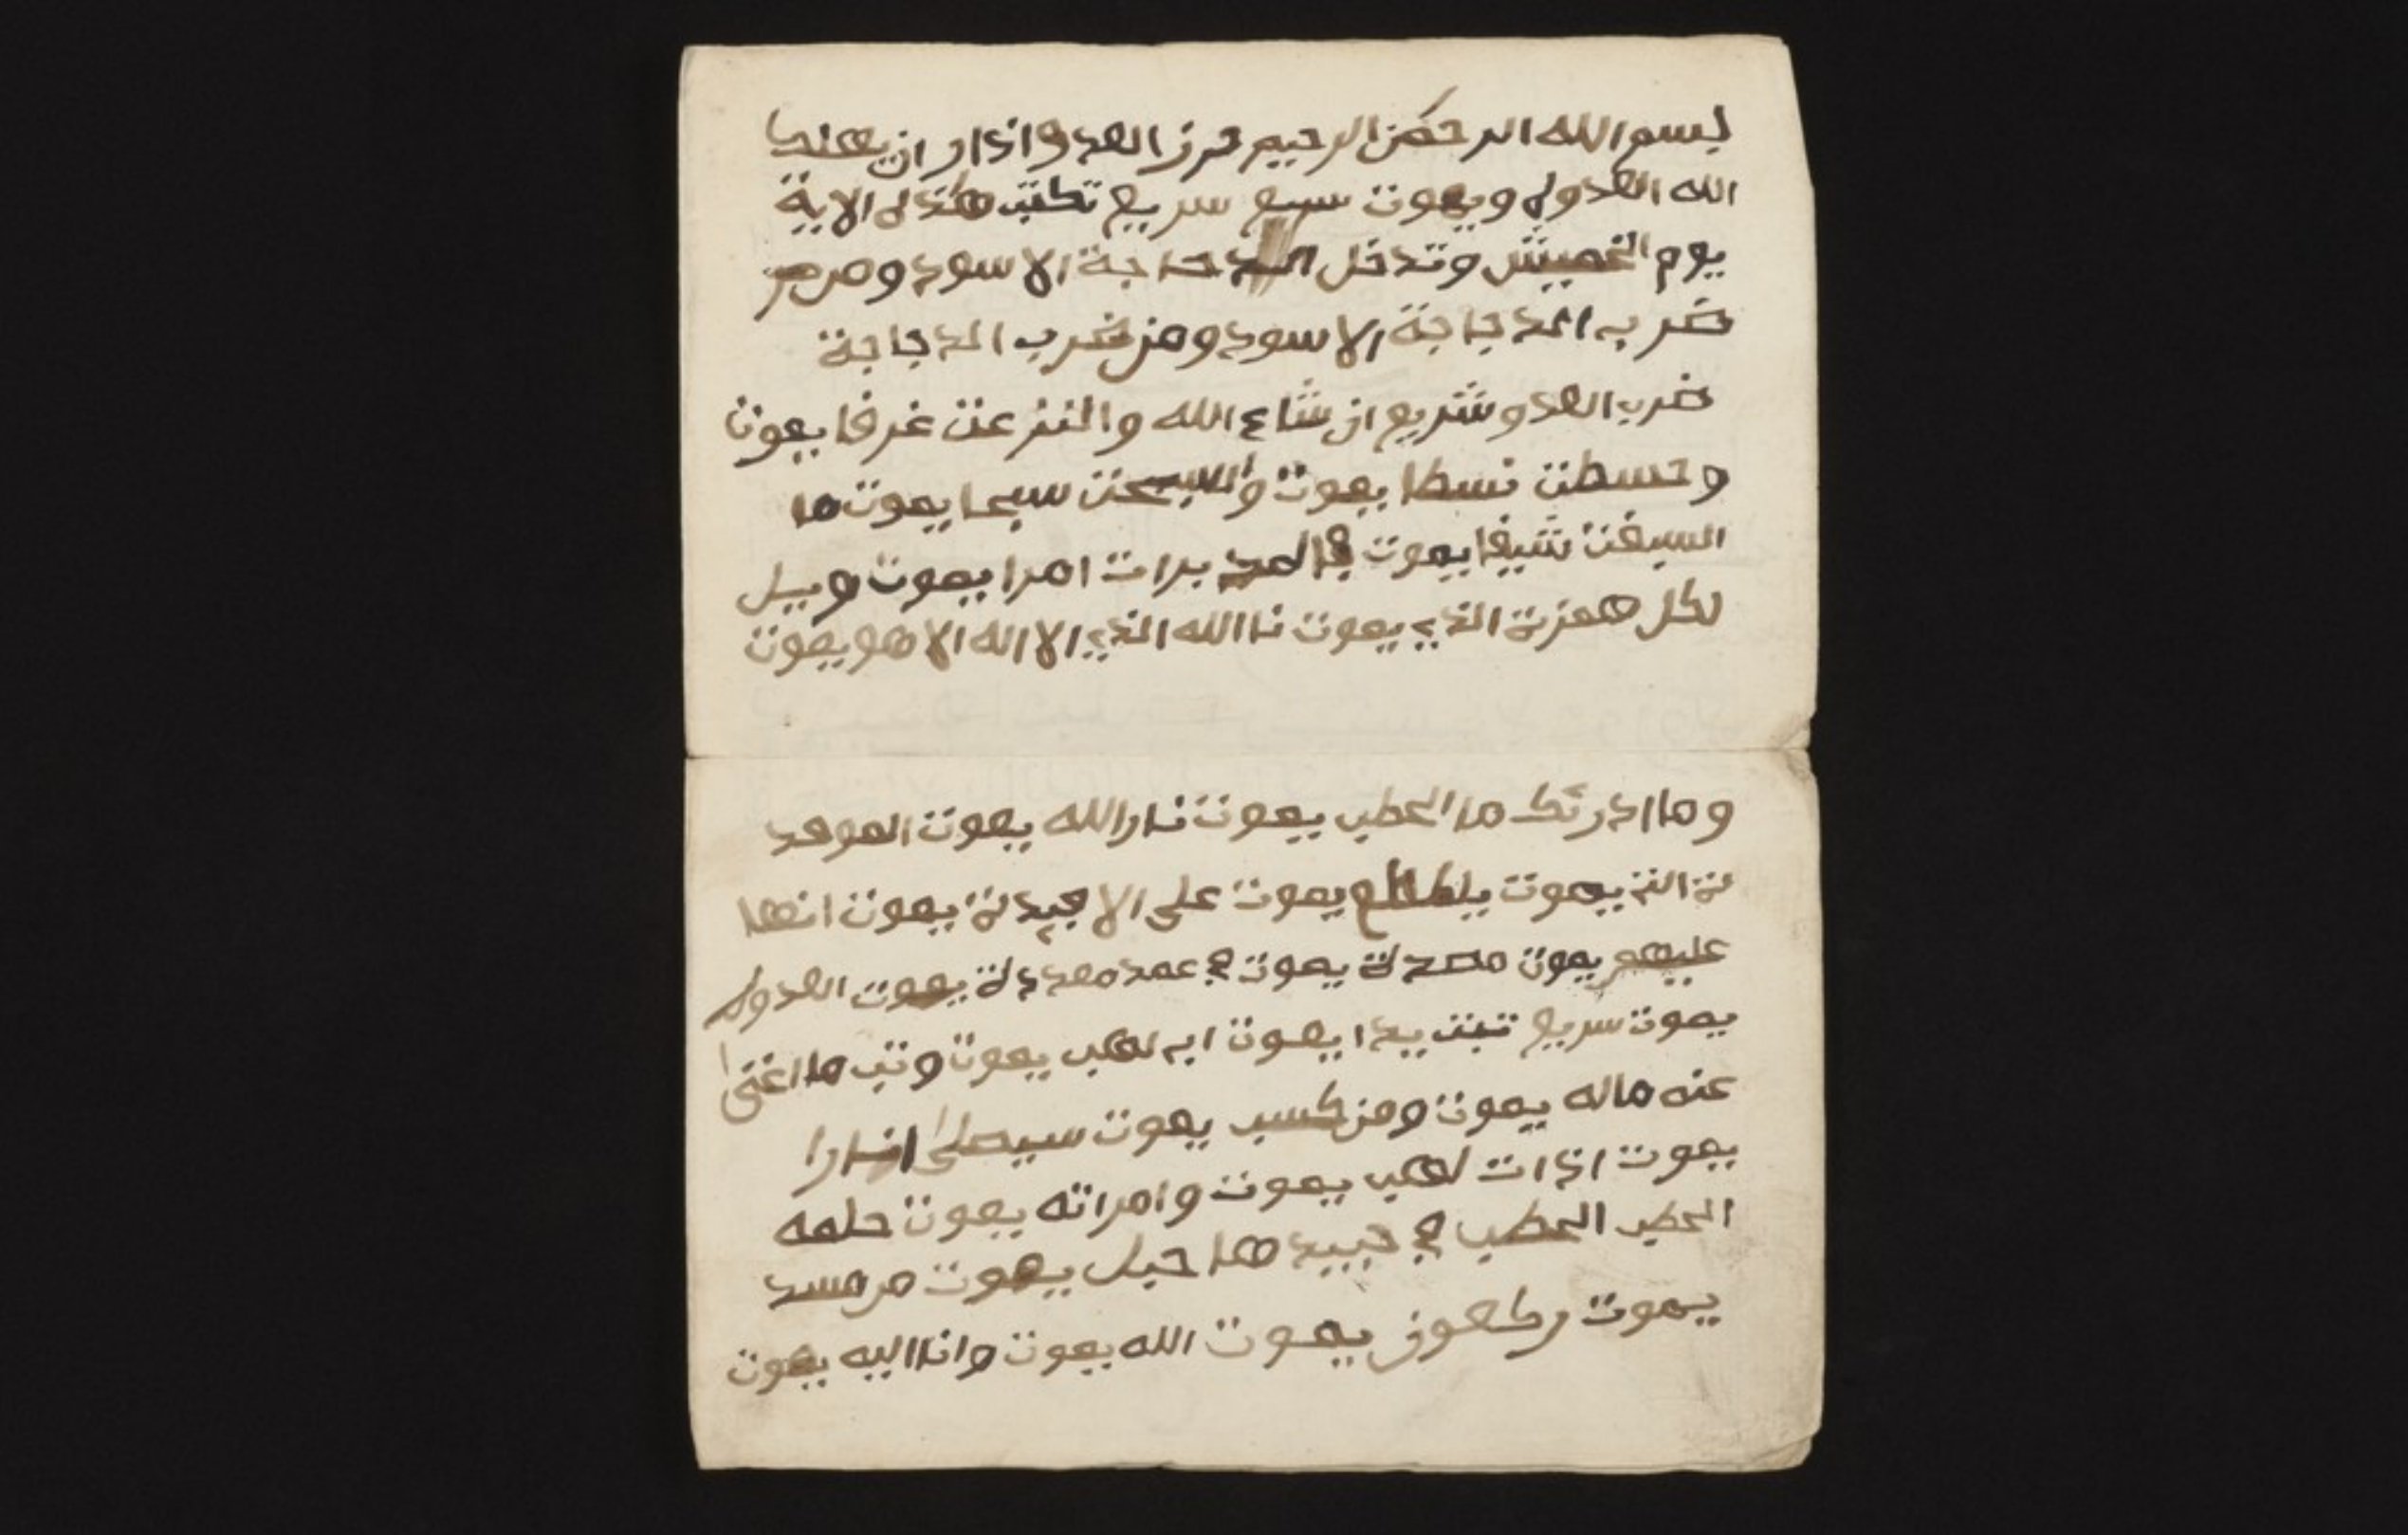 بسم الله الرحمن الرحيم حرز العدو اذا اران يعند
الله العدول ويموت سريع سريع تكتب هكذه الاية
يوم الخميش وتدخل حاجة الاسود ومن
ضربه الدجاجة الاسود ومن ضرب الدجاجة
ضرب العدو شريع ان شاء الله والنزعت غرفا يموت
وحسطت نسطا يموت والسبحت سبحا يموت ما
السبفت شيفا يموت فالمد برات امرا يموت ويل
لكل همزة الذي يموت نا الله الذي الا اله الا هو يموت
وما ادرئك ما الحطب يموت نار الله يموت الموقد
لة الت يموت يطلع يموت على الافيدلة يموت انها
عليهم يموت مصدلة يموت في عمد ممددلة يموت العدول
يموت سريع تبت يدا يموت ابه لهب يموت وتب ما اغنى
عنه ماله يموت ومن كسب يموت سيصلى نارا
يموت اذات لهب يموت وامراته يموت حلمه
الحطب الحطب في جييدها حبل يموت من مسد
يموت يموت الله يموت وانا اليه يموت